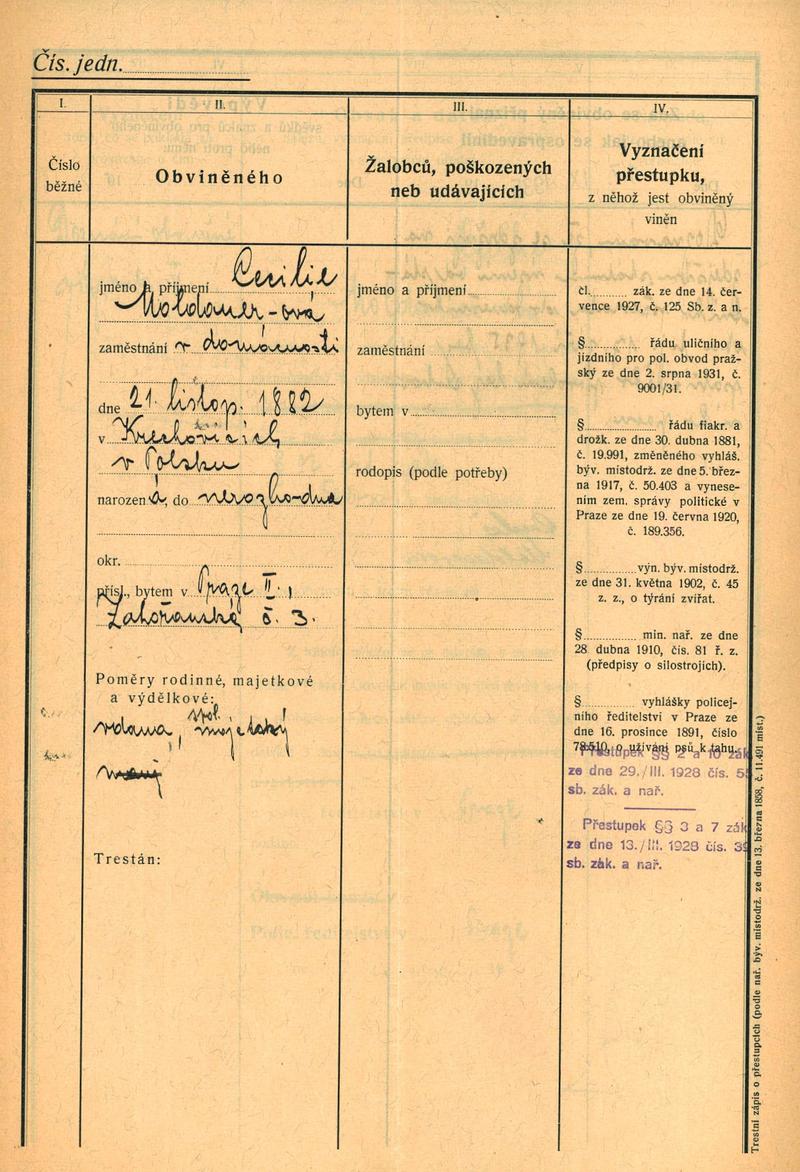 Čís. jedn.
I.
II.
III.
IV.
Číslo
běžné
Obviněného
Žalobců, poškozených
neb udávajících
Vyznačení
přestupku,
z něhož jest obviněný
viněn
jméno a příjmení Cecilie
-ová
zaměstnání v domácnosti
dne 21. listop. 1882
v
v Polsku
narozená, do
okr.
přísl., bytem v Praze II.,
č. 3.
Poměry rodinné, majetkové
a výdělkové:
vdova,
Trestán:
jméno a příjmení
zaměstnání
bytem v
rodopis (podle potřeby)
čl. zák. ze dne 14. čer-
vence 1927, č. 125 Sb. z. a n.
§ řádu uličního a
jízdního pro pol. obvod praž-
ský ze dne 2. srpna 1931, č.
9001/31.
§ řádu fiakr. a
drožk. ze dne 30. dubna 1881,
č. 19.991, změněného vyhláš.
býv. místodrž. ze dne 5. břez-
na 1917, č. 50.403 a vynese-
ním zem. správy politické v
Praze ze dne 19. června 1920,
č. 189.356.
§ výn. býv. místodrž.
ze dne 31. května 1902, č. 45
z. z., o týrání zvířat.
§ min. nař. ze dne
28 dubna 1910, čís. 81 ř. z.
(předpisy o silostrojích).
§ vyhlášky policej-
ního ředitelství v Praze ze
dne 16. prosince 1891, číslo
78.510, o užívání psů k tahu.
Přestupek §§ 2 a 10 zák
ze dne 29./III. 1928 čís. 5
sb. zák. a nař.
Přestupek §§ 3 a 7 zák
ze dne 13./III. 1928 čís. 39
sb. zák. a nař.
Trestní zápis o přestupcích (podle nař. býv. místodrž. ze dne 13. března 1858, č. 11.491 míst.)